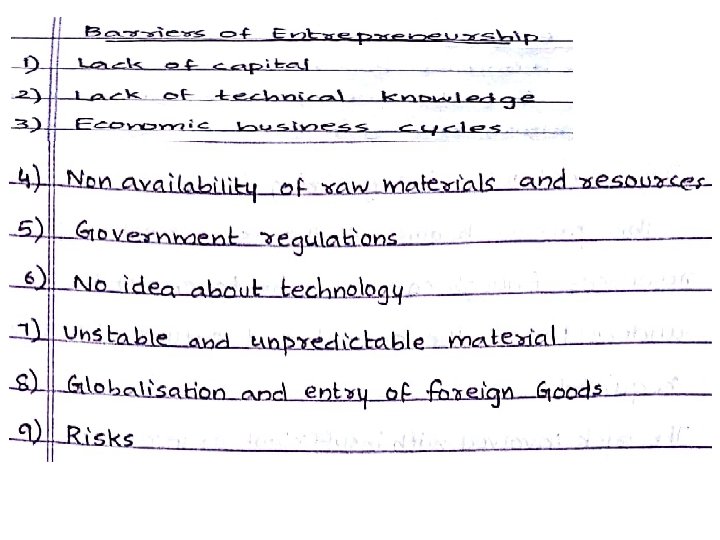 Barriers of Entrepreneurship
1) Lack of capital
2) Lack of technical knowledge
3) Economic business cycles
4) Non availability of raw materials and resources
5) Government regulations
6) No idea about technology
7) Unstable and unpredictable material
8) Globalisation and entry of foreign Goods
9) Risks